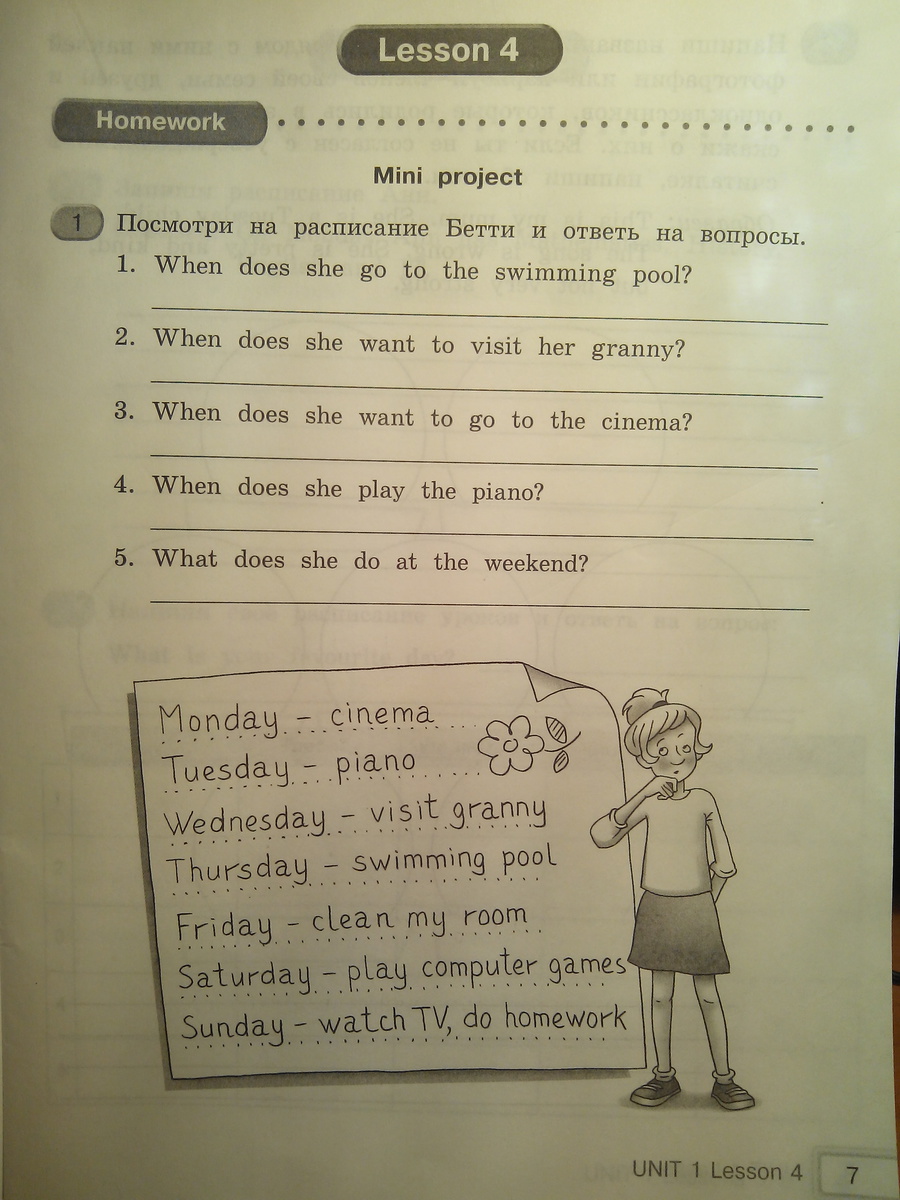 Lesson 4
Homework
Mini project
1 Посмотри на расписание Бетти и ответь на вопросы.
1. When does she go to the swimming pool?
2. When does she want to visit her granny?
3. When does she want to go to the cinema?
4. When does she play the piano?
5. What does she do at the weekend?
Monday - cinema
Tuesday - piano
Wednesday - visit granny
Thursday - swimming pool
Friday - clean my room
Saturday - play computer games
Sunday - watch TV, do homework
UNIT 1 Lesson 4 7